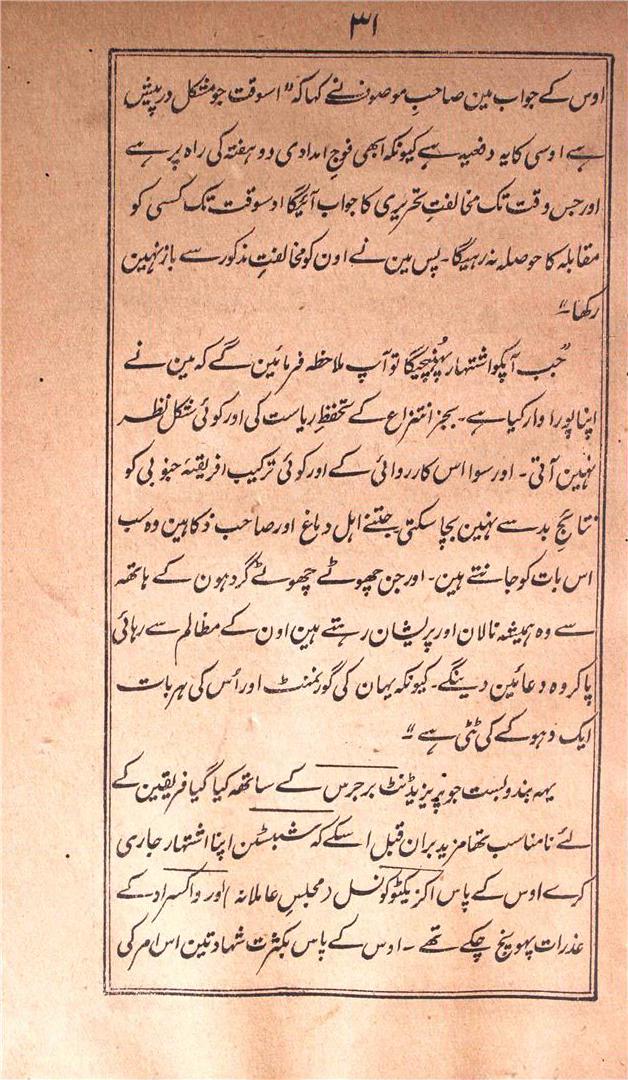 ۳۱
اوس کے جواب مین صاحبِ موصوف نے کہا کہ " اسوقت جو مشکل درپیش
ہے اوسی کا یہ دفعیہ ہے کیونکہ ابھی فوجِ امدادی دو ہفتہ کی راہ پر ہے
اور جس وقت تک مخالفتِ تحریری کا جواب آئیگا اوسوقت تک کسی کو
مقابلہ کا حوصلہ نہ رہیگا۔ پس مین نے اون کو مخالفتِ مذکور سے باز نہین
رکھا۔"
"جب آپکو اشتہار پہونچیگا تو آپ ملاحظہ فرمائین گے کہ مین نے
اپنا پورا وار کیا ہے۔ بجز انتزاع کے تحفظِ ریاست کی اور کوئی شکل نظر
نہین آتی۔ اور سوا اس کارروائی کے اور کوئی ترکیب افریقۂ جنوبی کو
نتائجِ بد سے نہین بچا سکتی جتنے اہل دماغ اور صاحب ذکا ہین وہ سب
اس بات کو جانتے ہین۔ اور جن چھوٹے چھوٹے گروہون کے ہاتھہ
سے وہ ہمیشہ نالان اور پریشان رہتے ہین اون کے مظالم سے رہائی
پاکر وہ دعائین دینگے۔ کیونکہ یہان کی گورنمنٹ اور اُس کی ہر بات
ایک دہوکے کی ٹٹی ہے۔"
یہہ بندوبست جو پریزیڈنٹ برجرس کے ساتھہ کیا گیا فریقین کے
لئے نامناسب تھا مزید بران قبل اسکے کہ شبسٹن اپنا اشتہار جاری
کرے اوس کے پاس اکزیکٹو کونسل (مجلسِ عاملانہ) اور واکسراد کے
عذرات پہونچ چکے تھے۔ اوس کے پاس بکثرت شہادتین اس امر کی